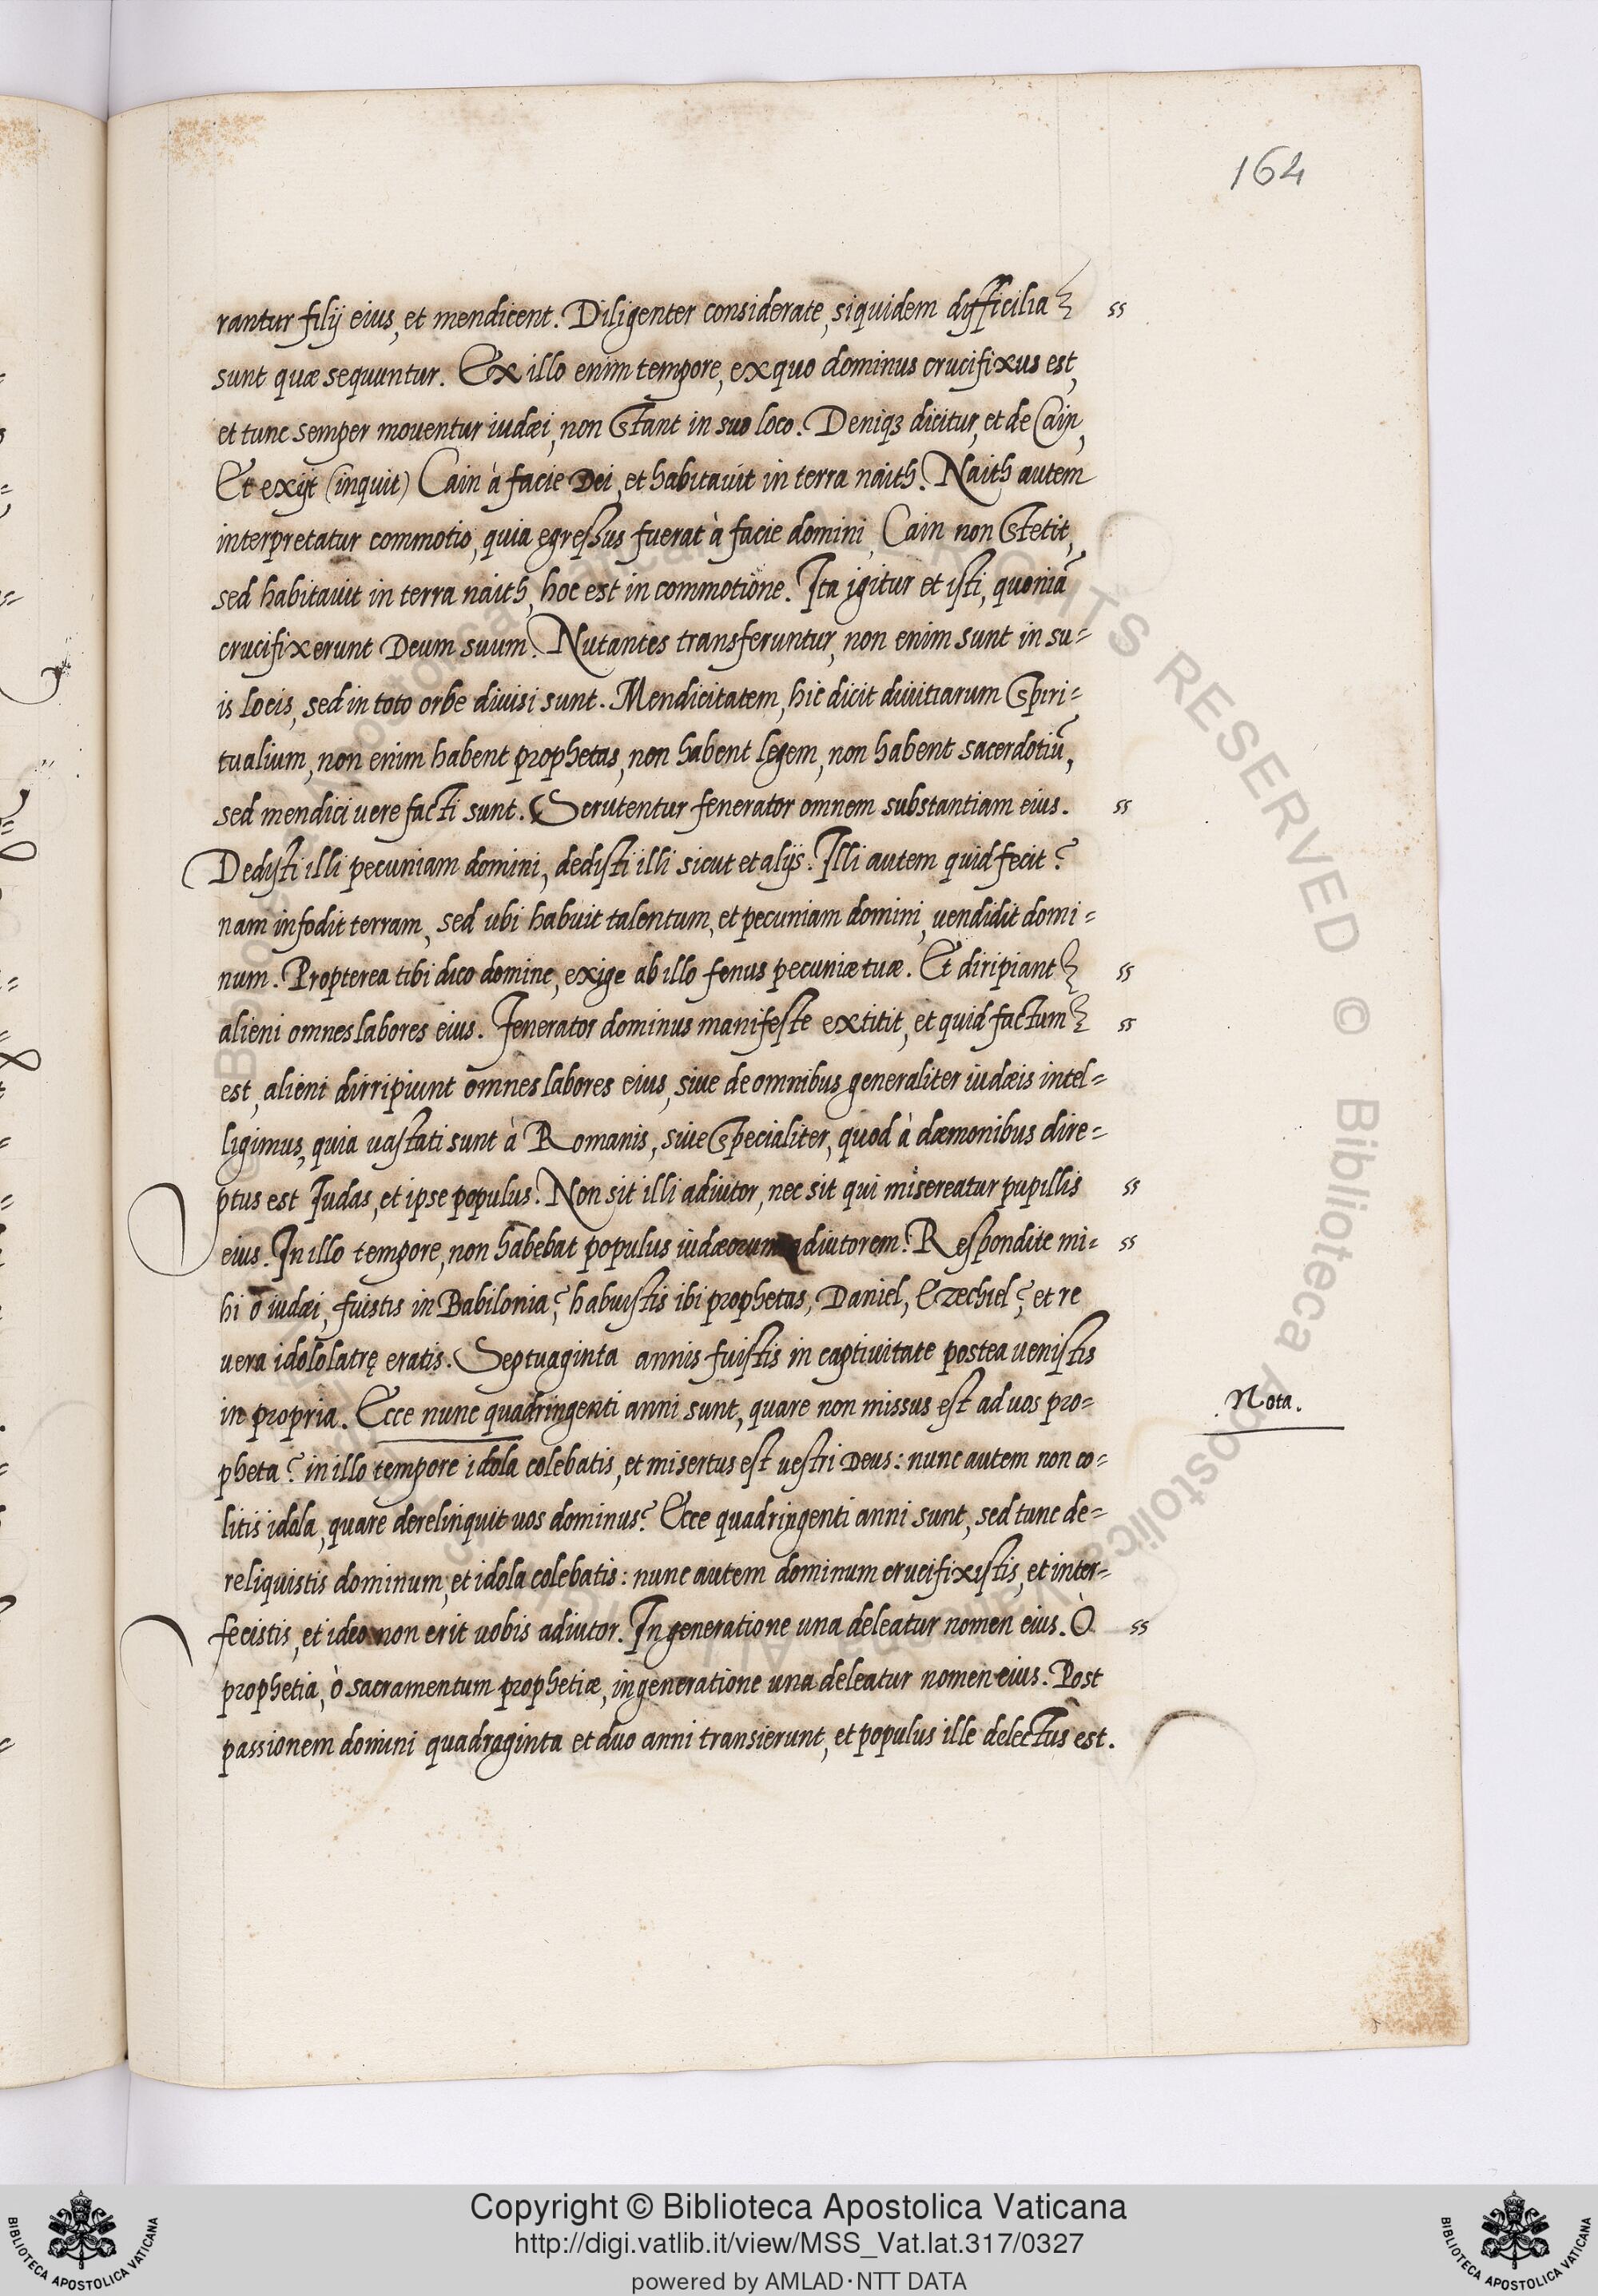 164
rantur filij eius, et mendicent. Diligenter considerate, siquidem difficilia ss
sunt quæ sequuntur. Ex illo enim tempore, ex quo dominus crucifixus est,
et tunc semper mouentur iudæi, non stant in suo loco. Deniqꝫ dicitur, et de Cain,
Et exijt (inquit) Cain à facie Dei, et habitauit in terra naith. Naith autem
interpretatur commotio, quia egressus fuerat à facie domini, Cain non stetit,
sed habitauit in terra naith, hoc est in commotione. Ita igitur et isti, quoniā
crucifixerunt Deum suum. Nutantes transferuntur, non enim sunt in su=
is locis, sed in toto orbe diuisi sunt. Mendicitatem, hic dicit diuitiarum spiri=
tualium, non enim habent prophetas, non habent legem, non habent sacerdotiū,
sed mendici uere facti sunt. Scrutentur fenerator omnem substantiam eius. ss
Dedisti illi pecuniam domini, dedisti illi sicut et alijs. Illi autem quid fecit?
nam infodit terram, sed ubi habuit talentum, et pecuniam domini, uendidit domi=
num. Propterea tibi dico domine, exige ab illo fenus pecuniæ tuæ. Et diripiant ss
alieni omnes labores eius. Fenerator dominus manifeste extitit, et quid factum ss
est, alieni dirripiunt omnes labores eius, siue de omnibus generaliter iudæis intel=
ligimus, quia uastati sunt à Romanis, siue specialiter, quod à dæmonibus dire=
ptus est Iudas, et ipse populus. Non sit illi adiutor, nec sit qui misereatur pupillis ss
eius. In illo tempore, non habebat populus iudæorum adiutorem. Respondite mi= ss
hi ò iudæi, fuistis in Babilonia? habuistis ibi prophetas, Daniel, Ezechiel? et re
uera idololatrę eratis. Septuaginta annis fuistis in captiuitate postea uenistis
in propria. Ecce nunc quadringenti anni sunt, quare non missus est ad uos pro=
Nota.
pheta? in illo tempore idola colebatis, et misertus est uestri Deus: nunc autem non co=
litis idola, quare derelinquit uos dominus? Ecce quadringenti anni sunt, sed tunc de=
reliquistis dominum, et idola colebatis: nunc autem dominum crucifixistis, et inter=
fecistis, et ideo non erit uobis adiutor. In generatione una deleatur nomen eius. Ò ss
prophetia, ò sacramentum prophetiæ, in generatione una deleatur nomen eius. Post
passionem domini quadraginta et duo anni transierunt, et populus ille delectus est.
Copyright © Biblioteca Apostolica Vaticana
http://digi.vatlib.it/view/MSS_Vat.lat.317/0327
powered by AMLAD·NTT DATA
BIBLIOTECA APOSTOLICA VATICANA
BIBLIOTECA APOSTOLICA VATICANA